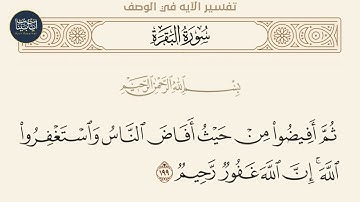 تفسير الآيه في الوصف
سُورَةُ البَقَرَةِ
بِسْمِ اللَّهِ الرَّحْمَٰنِ الرَّحِيمِ
ثُمَّ أَفِيضُوا۟ مِنْ حَيْثُ أَفَاضَ ٱلنَّاسُ وَٱسْتَغْفِرُوا۟
ٱللَّهَ ۚ إِنَّ ٱللَّهَ غَفُورٌ رَّحِيمٌ ١٩٩